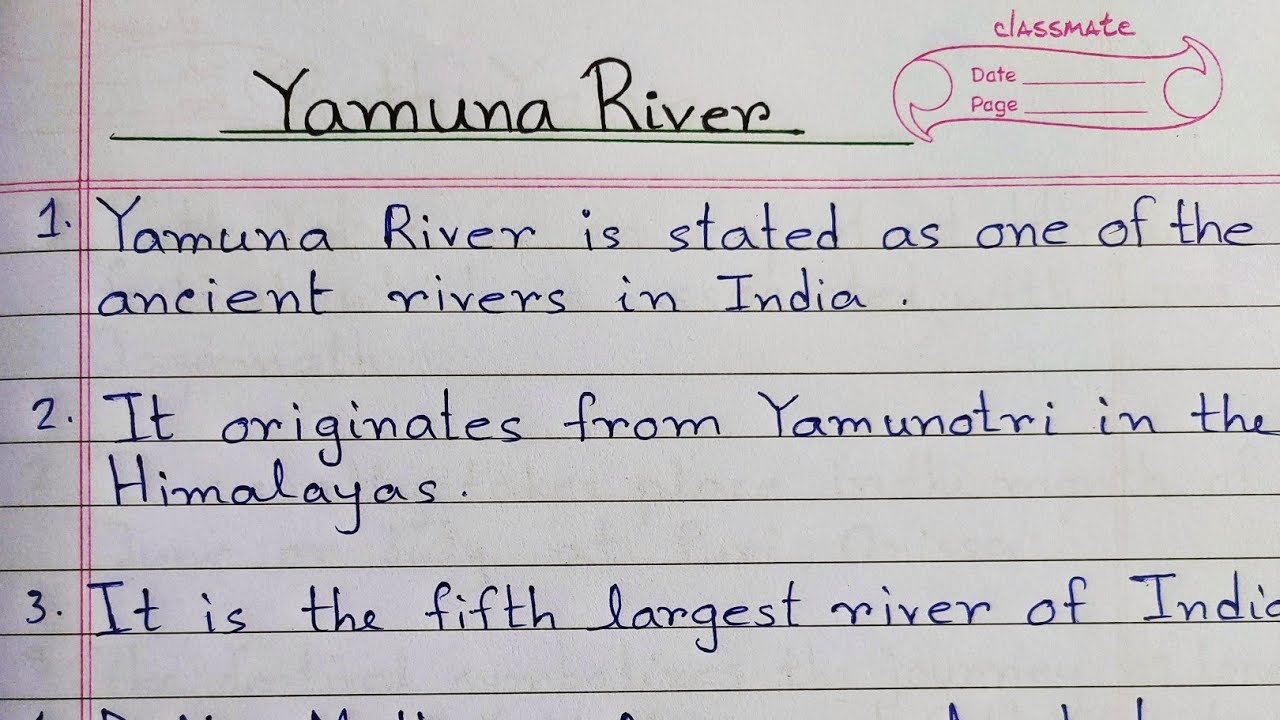 classmate
Date
Page
Yamuna River
1. Yamuna River is stated as one of the
ancient rivers in India.
2. It originates from Yamunotri in the
Himalayas.
3. It is the fifth largest river of India